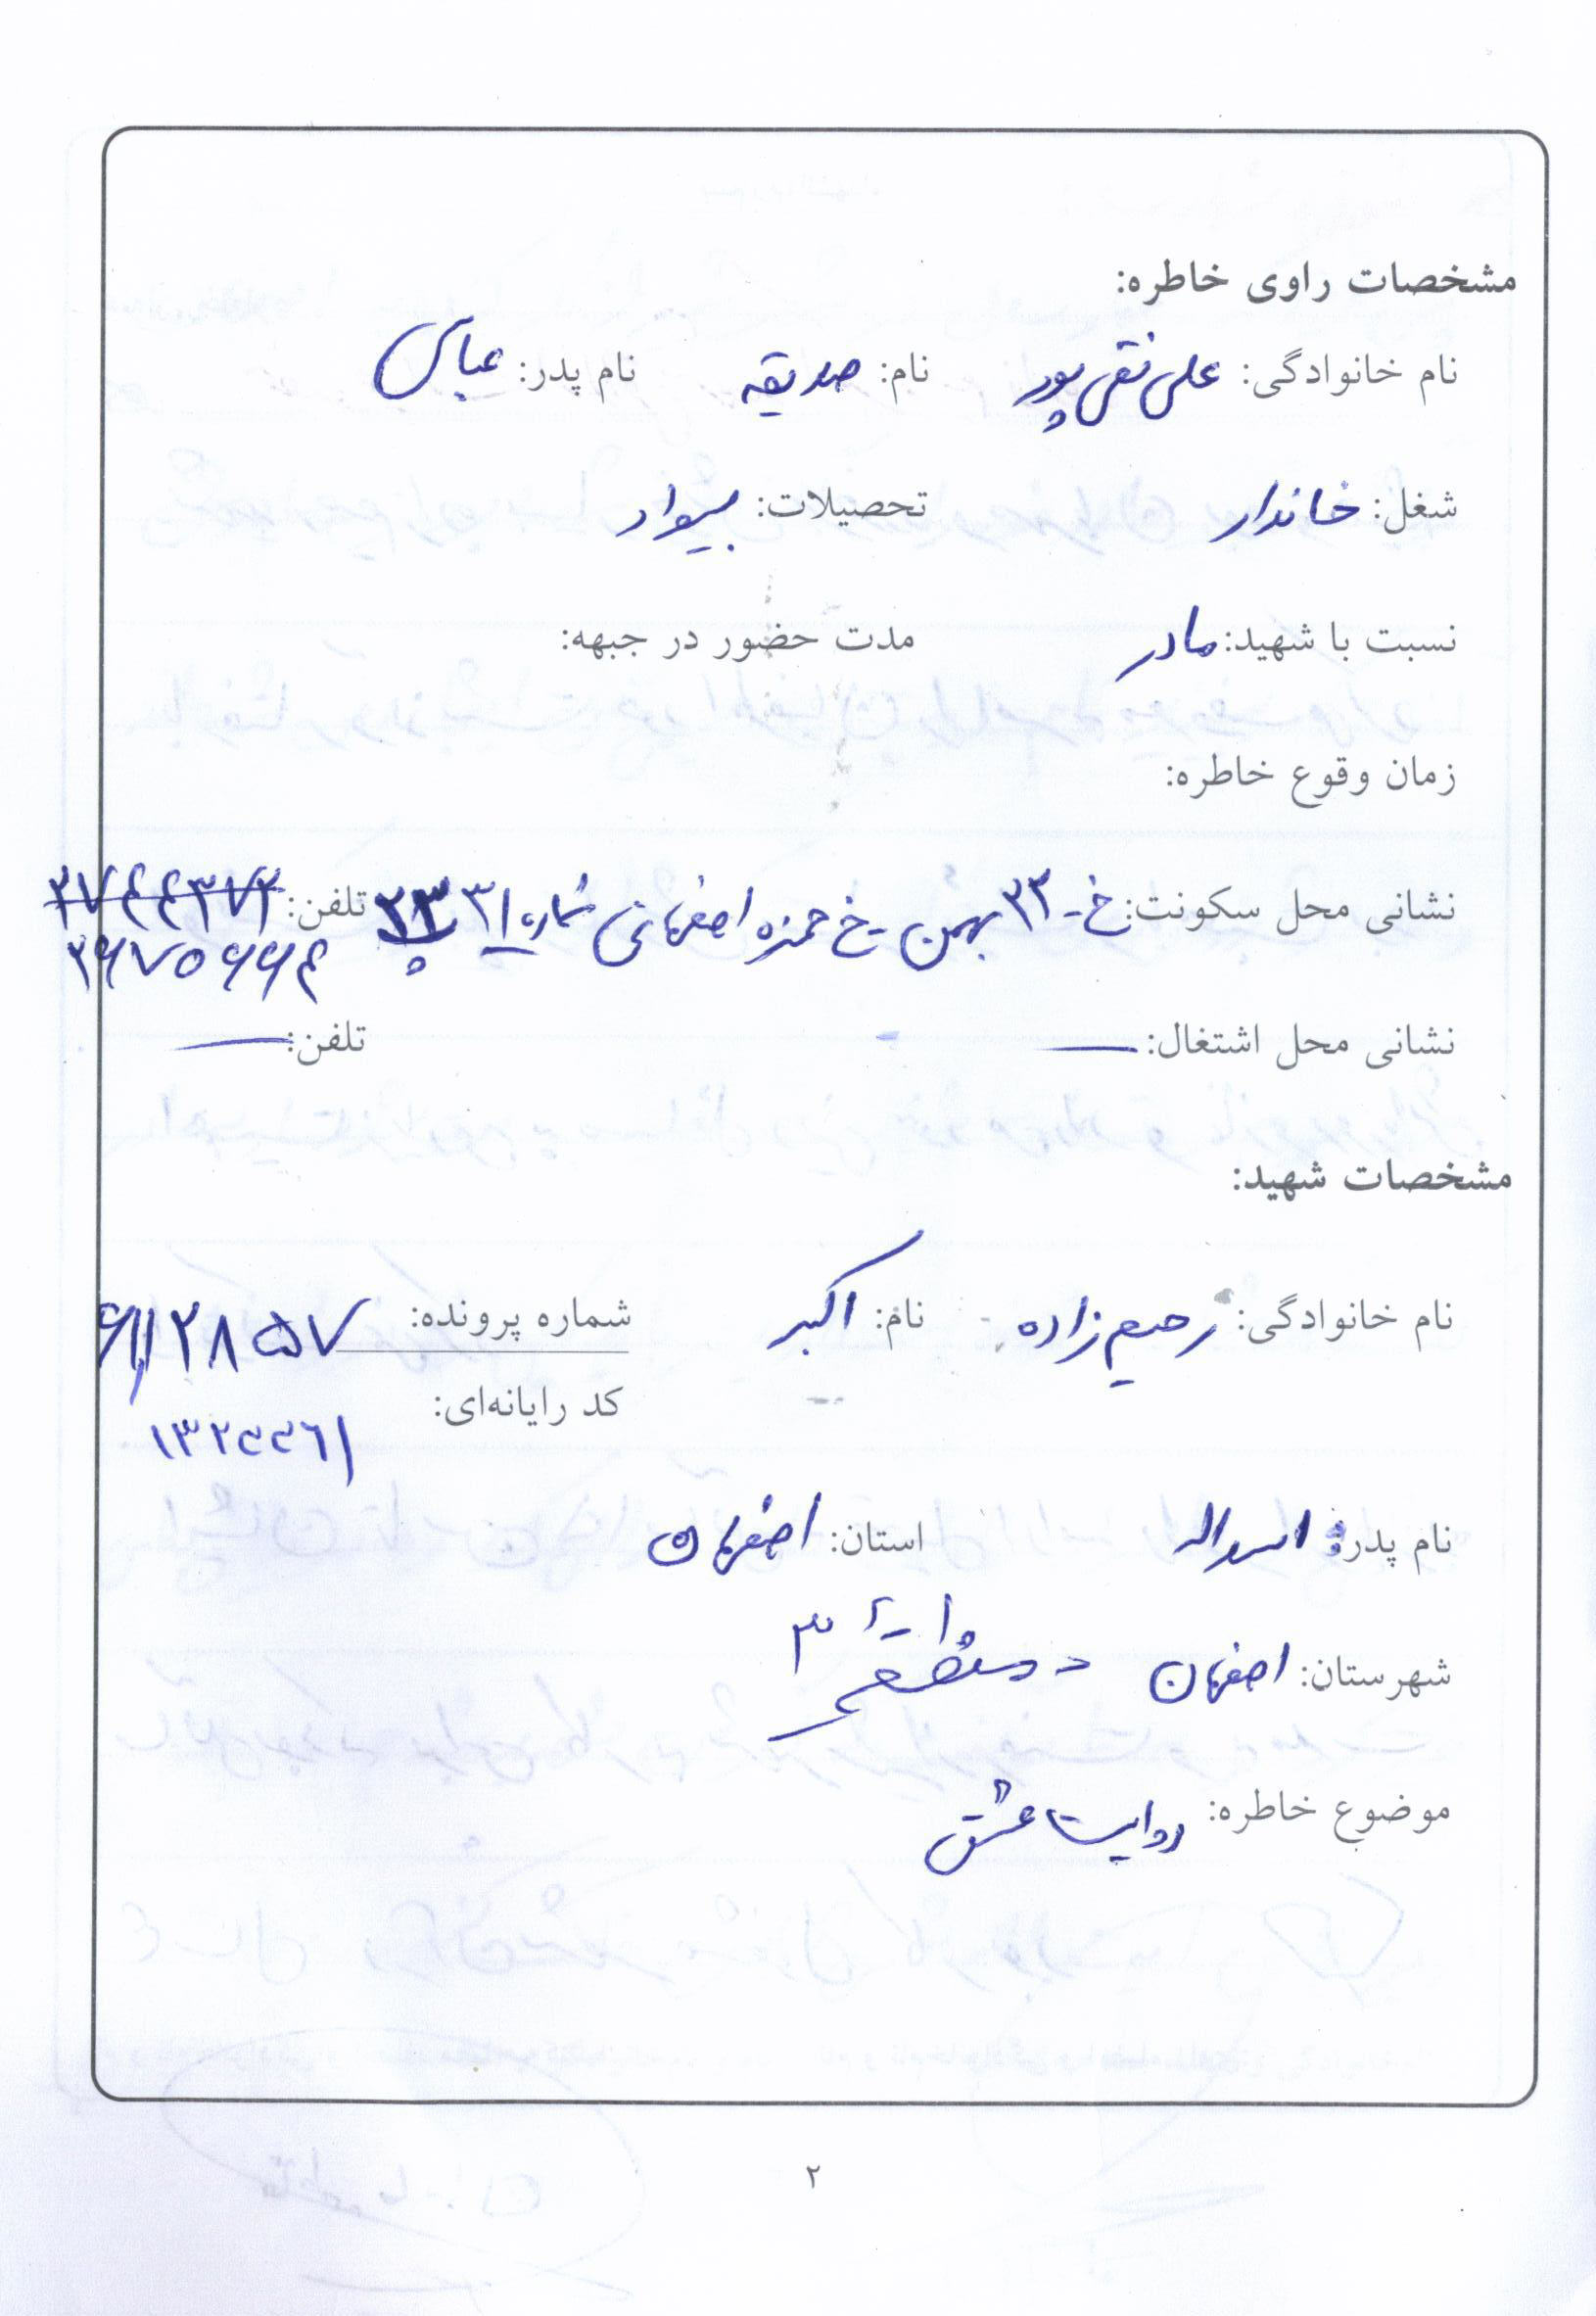 مشخصات راوی خاطره:
نام خانوادگی: علی نقی پور نام: صدیقه نام پدر: عباس
شغل: خاندار تحصیلات: بیسواد
نسبت با شهید: مادر مدت حضور در جبهه:
زمان وقوع خاطره:
نشانی محل سکونت: خ - ۲۲ بهمن - خ حمزه اصفهانی شماره ۳۱ پ ۲۳ تلفن: ۲۷۴۴۳۷۲
۲۶۷۵۶۶۴
نشانی محل اشتغال: — تلفن: —
مشخصات شهید:
نام خانوادگی: رحیم زاده نام: اکبر شماره پرونده: ۶۱۱۲۸۵۷
کد رایانه‌ای: ۱۳۲۴۴۶۱
نام پدر: اسداله استان: اصفهان
شهرستان: اصفهان - منطقه ۳
موضوع خاطره: روایت عشق
۲